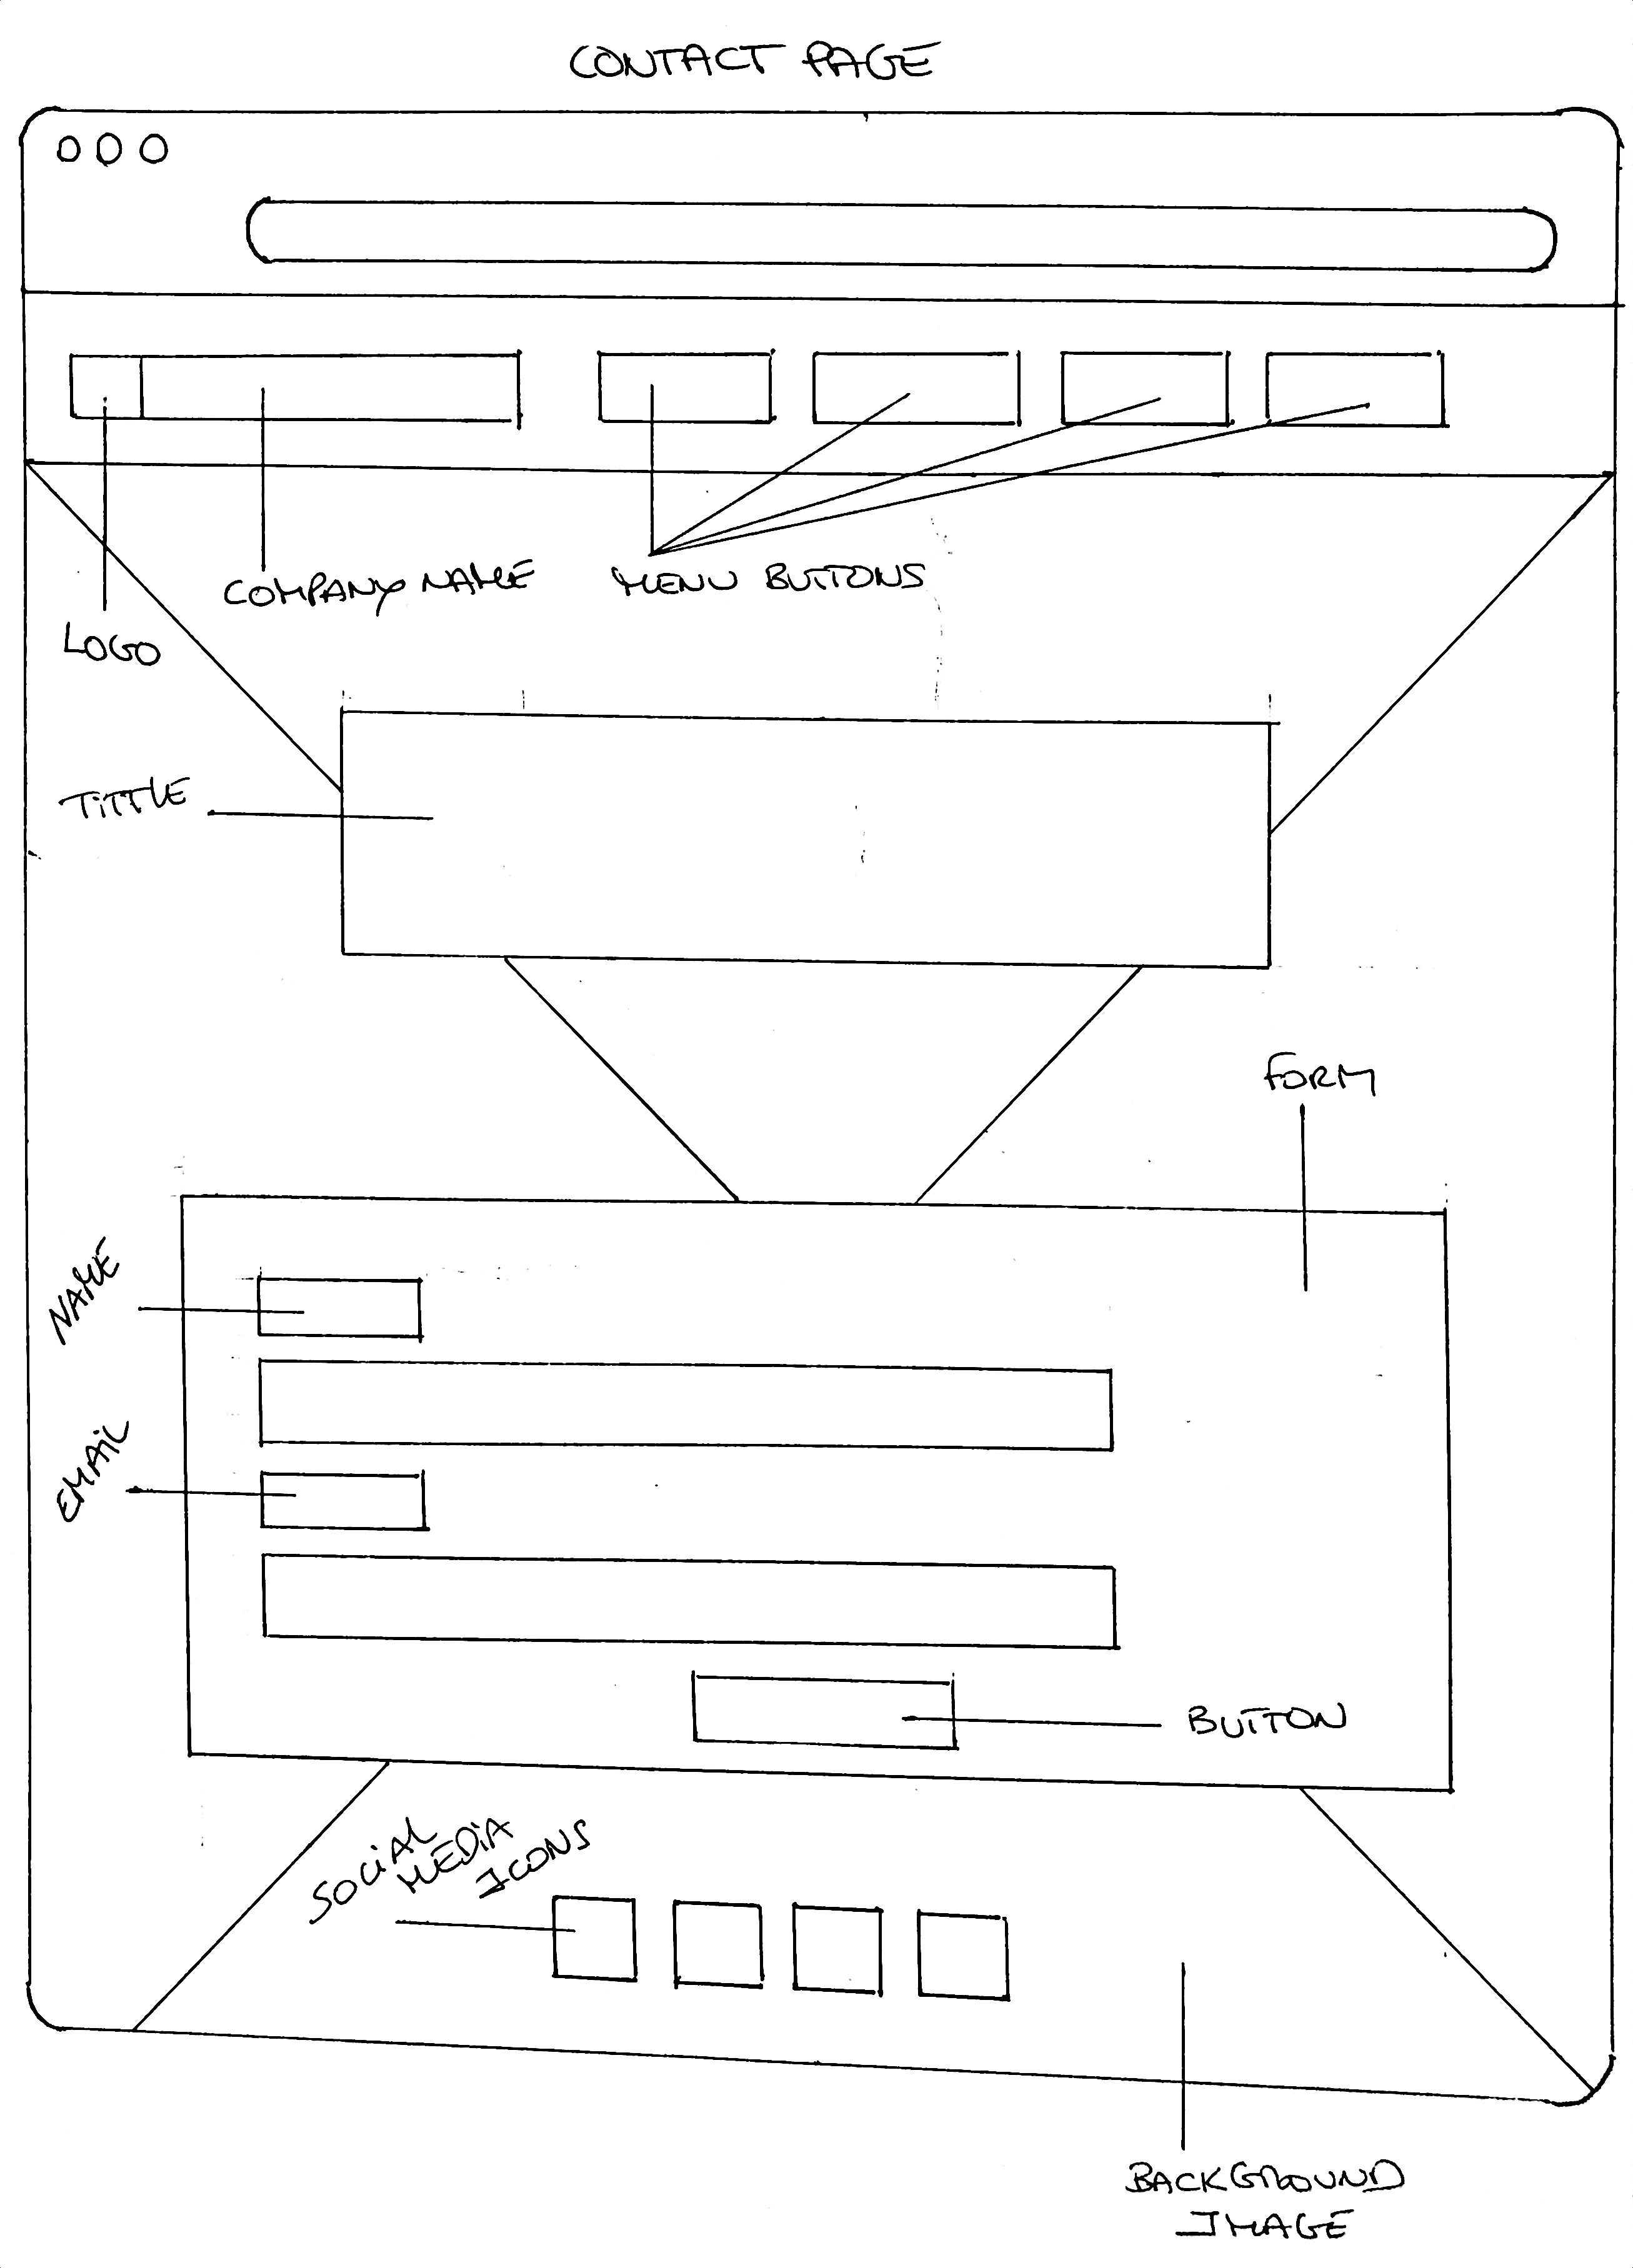 CONTACT PAGE
COMPANY NAME
MENU BUTTONS
LOGO
TITTLE
FORM
NAME
EMAIL
BUTTON
SOCIAL
MEDIA
ICONS
BACKGROUND
IMAGE